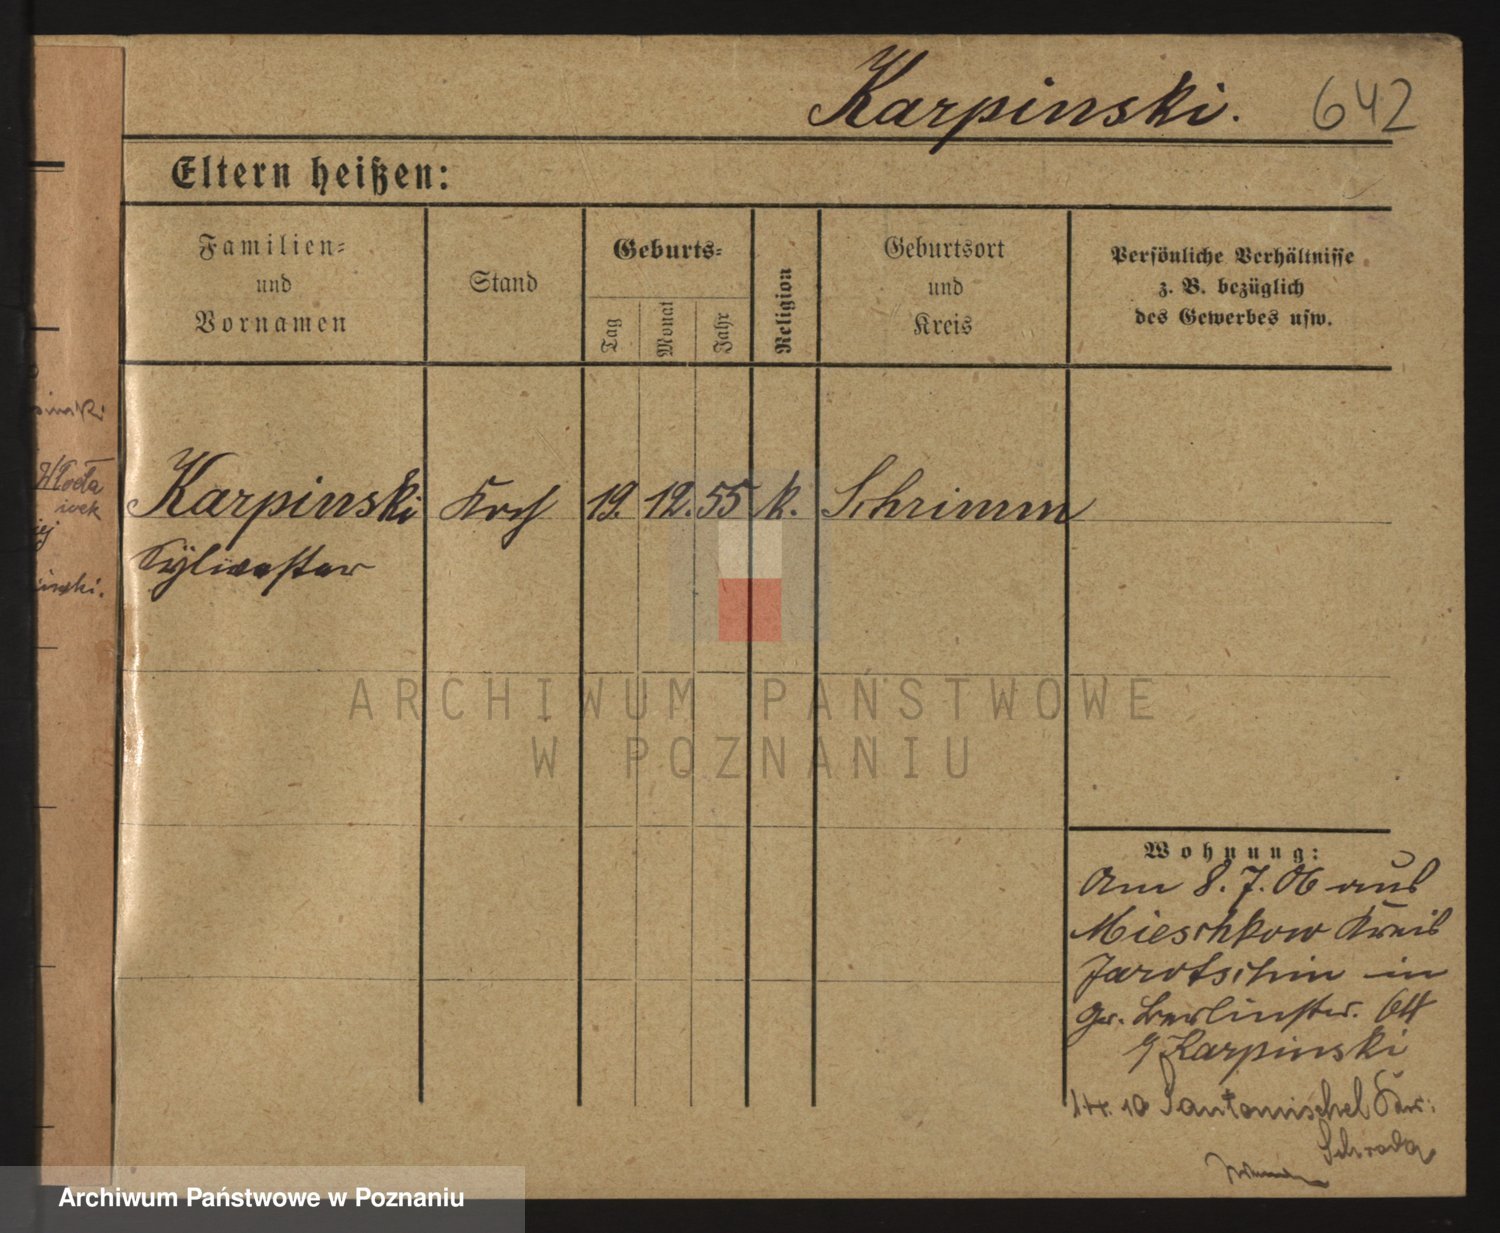 Karpinski. 642
Eltern heißen:
Familien=
und
Vornamen
Stand
Geburts=
Tag
Monat
Jahr
Religion
Geburtsort
und
Kreis
Persönliche Verhältnisse
z. B. bezüglich
des Gewerbes usw.
Karpinski 19. 12. 55 k. Schrimm
Sylwester
Wohnung:
Am 8.7.06 aus
Mieschkow Kreis
Jarotschin in
gr. Berlinstr.
Karpinski
10 Santomischel
Schroda
ARCHIWUM PAŃSTWOWE
W POZNANIU
Archiwum Państwowe w Poznaniu